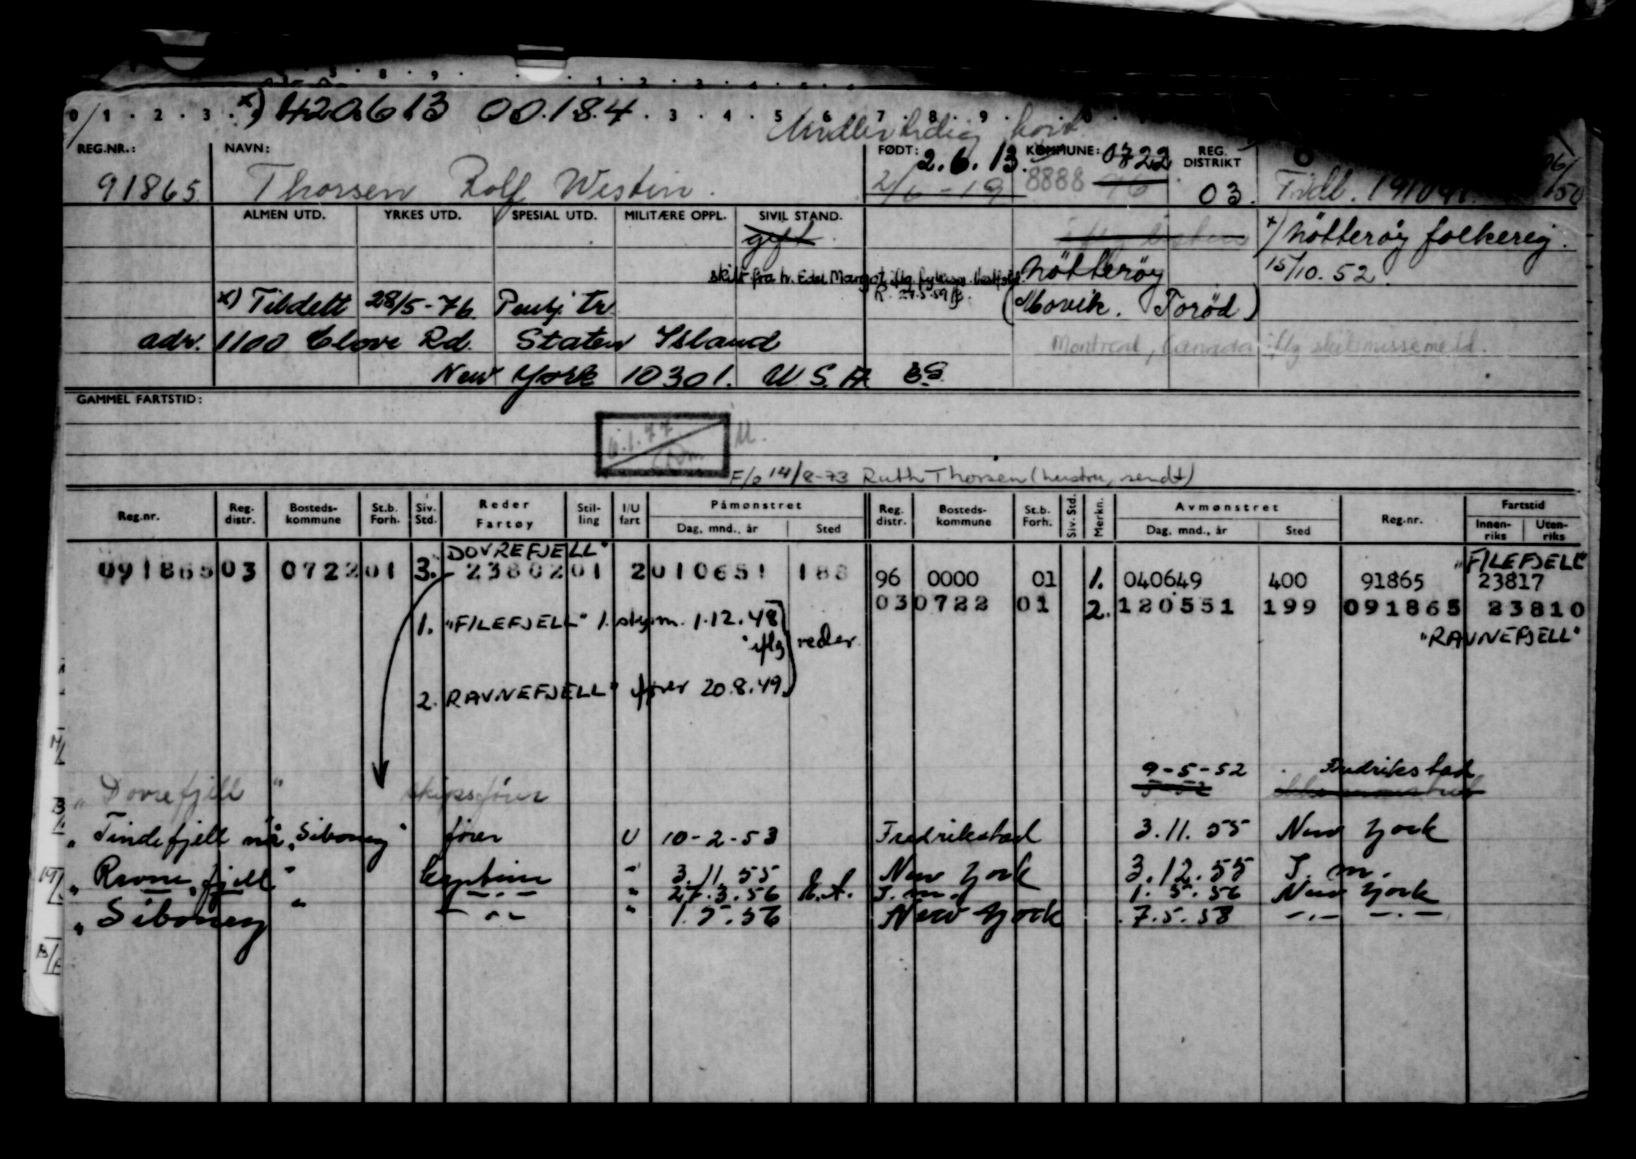 x) 020613 00.184
Midlertidig kort
REG.NR.: NAVN: FØDT: 2.6.13. KOMMUNE: 0722 REG. DISTRIKT
91865 Thorsen Rolf Westin. 2/6-19 8888 96 03.
ALMEN UTD. YRKES UTD. SPESIAL UTD. MILITÆRE OPPL. SIVIL STAND.
gift x) Nøtterøy folkereg.
skilt fra h. Edel Margot iflg. Nøtterøy 15/10.52.
x) Tildelt 28/5-76 (Movik. Torød)
adr. 1100 Clove Rd. Staten Island Montreal, Canada iflg skilsmissemeld.
New York 10301. U S A
GAMMEL FARTSTID:
6.1.77
F/o 14/8-73 Ruth Thorsen (hustru, sendt)
Reg.nr. Reg. distr. Bosteds-kommune St.b. Forh. Siv. Std. Reder Fartøy Stil-ling I/U fart Påmønstret Dag, mnd., år Sted Reg. distr. Bosteds-kommune St.b. Forh. Siv. Std. Merkn. Avmønstret Dag, mnd., år Sted Reg.nr. Fartstid Innen-riks Uten-riks
DOVREFJELL" "FILEFJELL"
091865 03 0722 01 3. 23802 01 2 010651 188 96 0000 01 1. 040649 400 91865 23817
03 0722 01 2. 120551 199 091865 23810
1. "FILEFJELL" 1. styrm. 1.12.48 "RAVNEFJELL"
iflg reder
2. RAVNEFJELL" fører 20.8.49
9-5-52 Fredrikstad
" Dovrefjell " skipsfører
" Tindefjell nå "Siboney" fører U 10-2-53 Fredrikstad 3.11.55 New York
" Ravnefjell " Captein " 3.11.55 New York 3.12.55 T.m.
" -.- " 27.3.56 T.m. 1.5.56 New York
" Siboney " -.- " 1.5.56 New York 7.5.58 -.- -.-